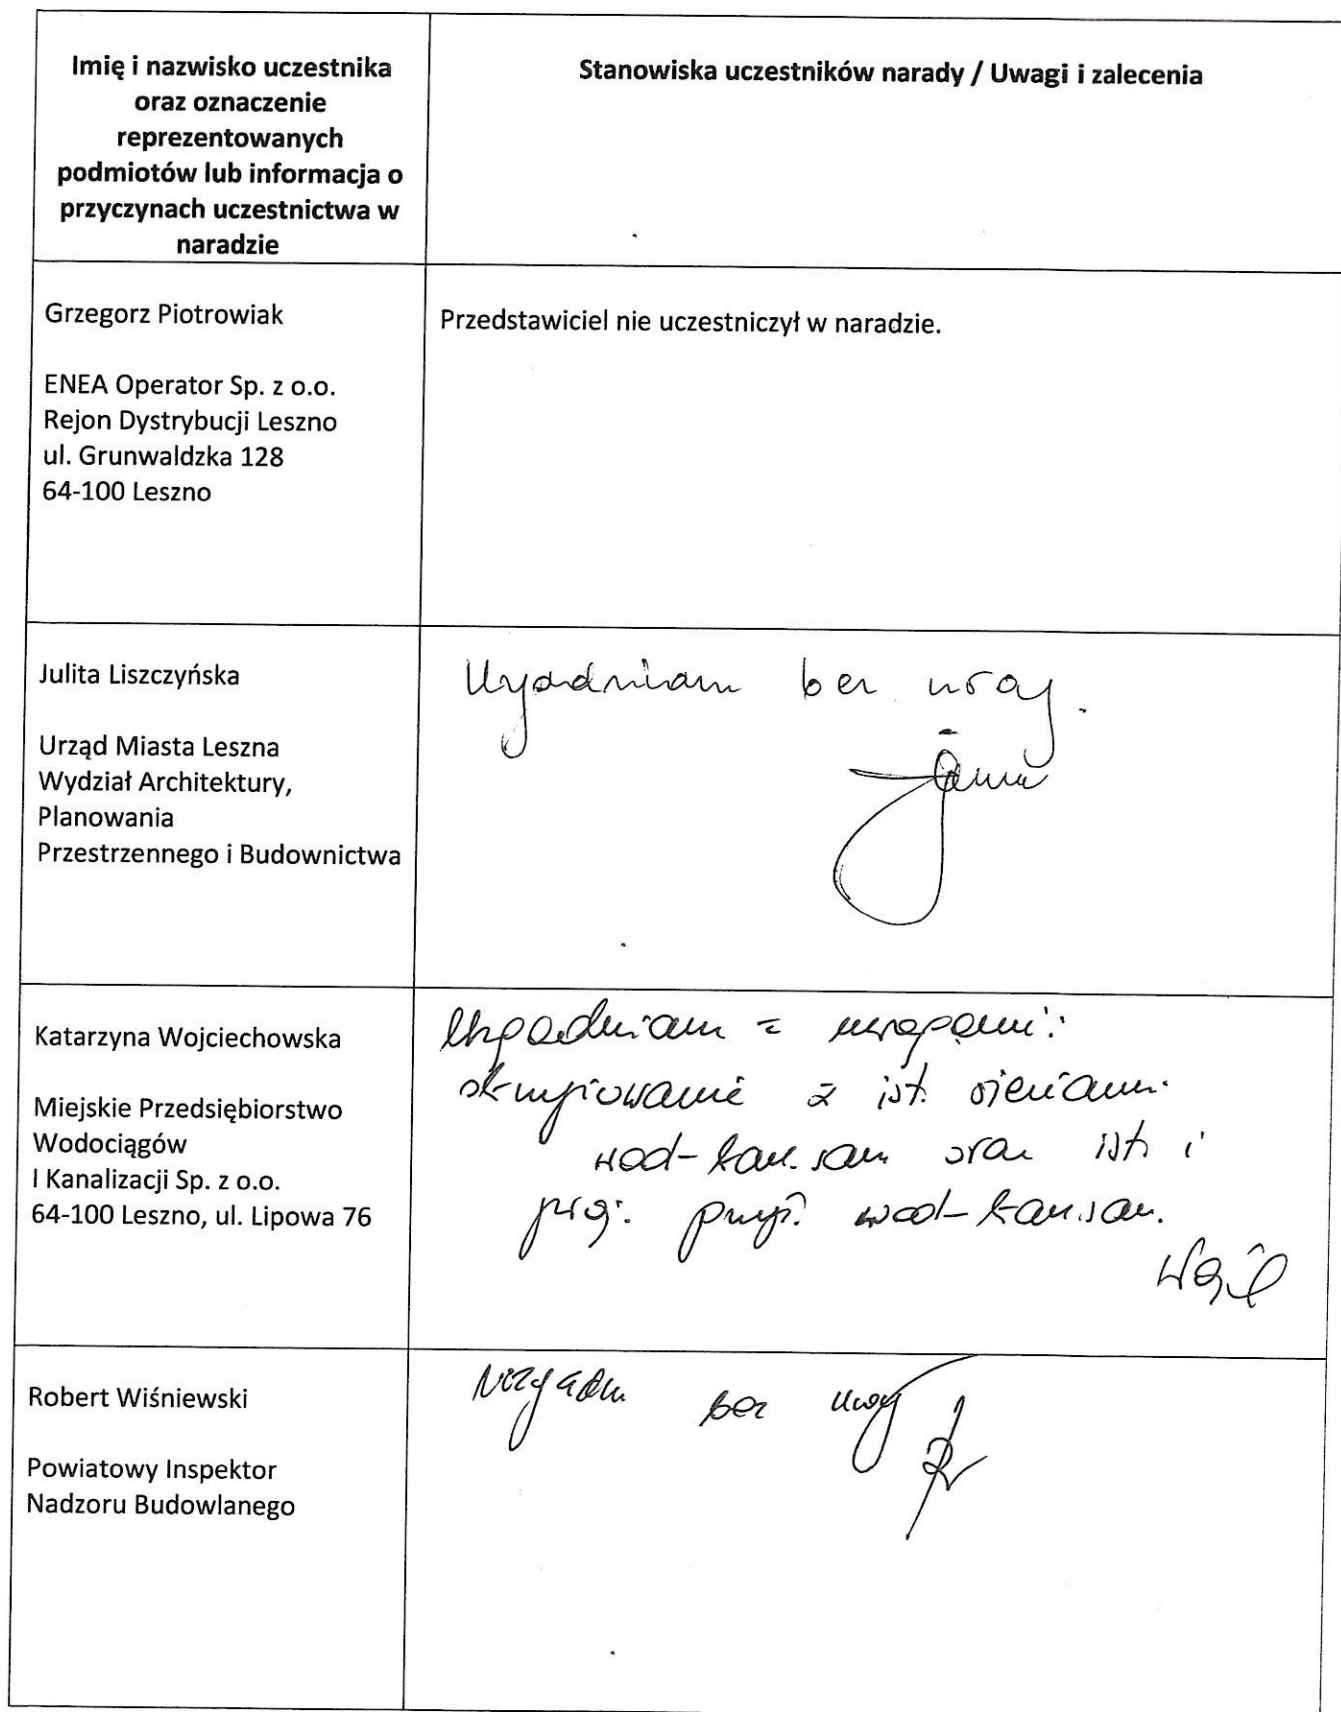 Imię i nazwisko uczestnika
oraz oznaczenie
reprezentowanych
podmiotów lub informacja o
przyczynach uczestnictwa w
naradzie
Stanowiska uczestników narady / Uwagi i zalecenia
Grzegorz Piotrowiak
ENEA Operator Sp. z o.o.
Rejon Dystrybucji Leszno
ul. Grunwaldzka 128
64-100 Leszno
Przedstawiciel nie uczestniczył w naradzie.
Julita Liszczyńska
Urząd Miasta Leszna
Wydział Architektury,
Planowania
Przestrzennego i Budownictwa
Uzgadniam bez uwag.
Katarzyna Wojciechowska
Miejskie Przedsiębiorstwo
Wodociągów
I Kanalizacji Sp. z o.o.
64-100 Leszno, ul. Lipowa 76
Uzgadniam z uwagami:
skrzyżowanie z ist. sieciami
wod-kan.san oraz ist. i
proj. przył. wod-kan.san.
Robert Wiśniewski
Powiatowy Inspektor
Nadzoru Budowlanego
bez uwag